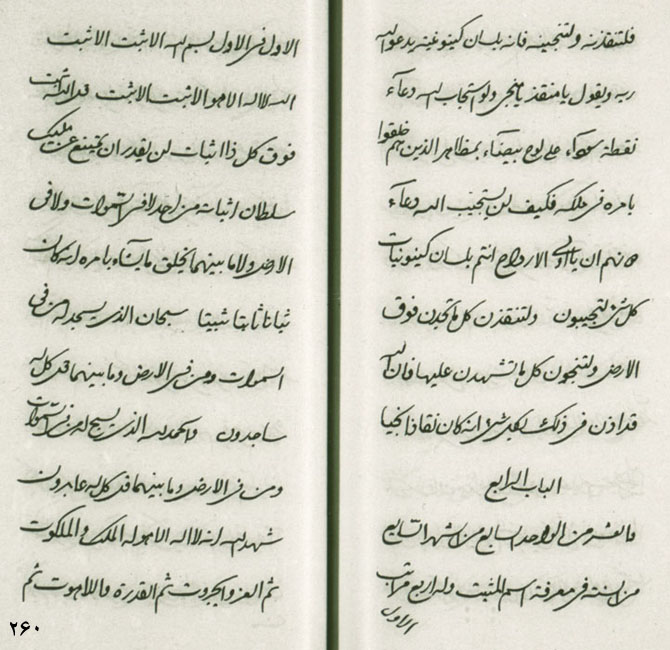 فلتنقذنه ولتنجينه فانه بلسان كينونيته يدعو الله
ربه ويقول يا منقذ يا منجى ولو استجاب الله دعاء
نقطة سوداء على لوح بيضاء بمظاهر الذين هم خلقوا
بامره فى ملكه فكيف لن يستجيب الله دعاء
هؤلاء ان يا اولى الارواح انتم بلسان كينونيات
كل شئ لتجيبون ولتنقذن كل ما تجدن فوق
الارض ولتنجون كل ما تشهدن عليها فان الله
قد اذن فى ذلك لكل شئ انه كان نقاذا نجيا
الباب الرابع
من الواحد السابع من الشهر السابع
من السنة فى معرفة اسم المثبت وله اربع مراتب
الاول
الاول فى الاول بسم الله الاثبت الاثبت
الله لا اله الا هو الاثبت الاثبت قل الله اثبت
فوق كل ذا اثبات لن يقدر ان يمتنع عن مليك
سلطان اثباته من احد لا فى السموات ولا فى
الارض ولا ما بينهما يخلق ما يشاء بامره انه كان
ثباتا ثابتا ثبيتا سبحان الذى يسجد له من فى
السموات ومن فى الارض وما بينهما قل كل له
ساجدون والحمد لله الذى يسبح له من فى السموات
ومن فى الارض وما بينهما قل كل له عابدون
شهد الله انه لا اله الا هو له الملك والملكوت
ثم العز والجبروت ثم القدرة واللاهوت ثم
۲۶۰